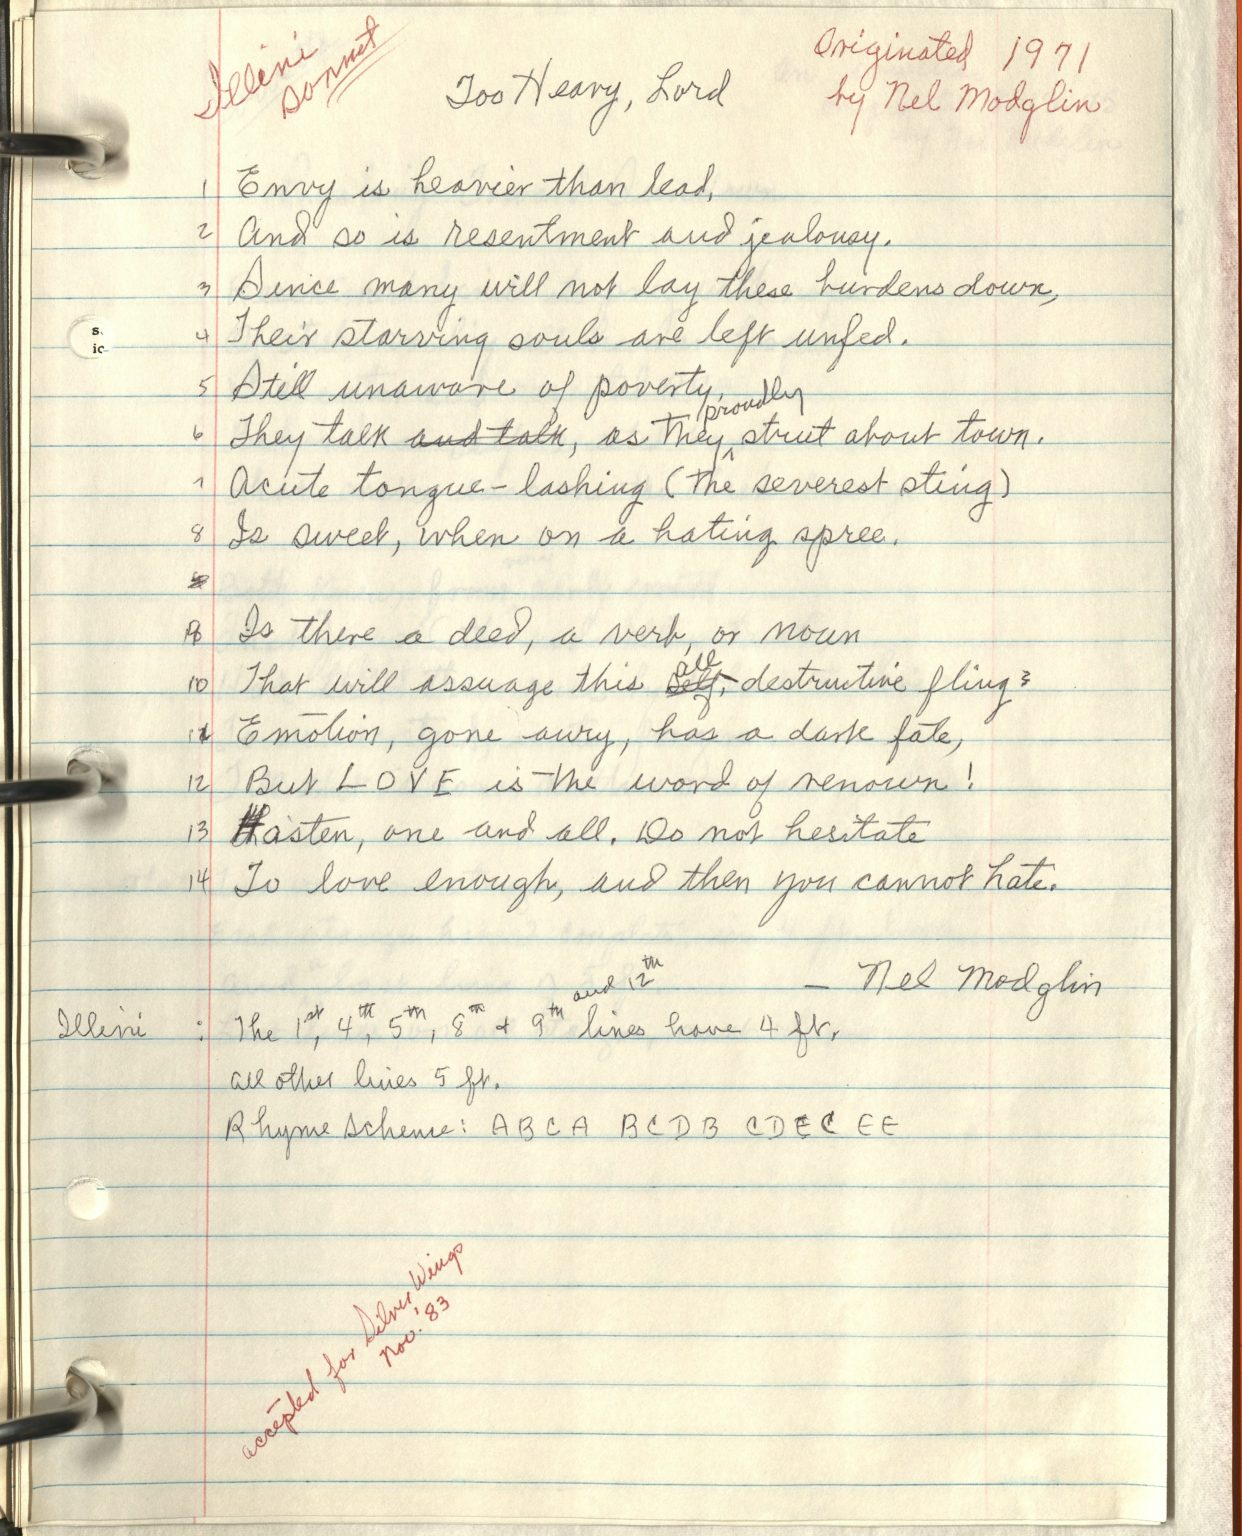 Illini
Sonnet
Originated 1971
by Nel Modglin
Too Heavy, Lord
1 Envy is heavier than lead,
2 And so is resentment and jealousy.
3 Since many will not lay these burdens down,
4 Their starving souls are left unfed.
5 Still unaware of poverty,
proudly
6 They talk and talk, as they ^ strut about town.
7 Acute tongue-lashing (the severest sting)
8 Is sweet, when on a hating spree.
9 Is there a deed, a verb, or noun
all
10 That will assuage this self-destructive fling?
11 Emotion, gone awry, has a dark fate,
12 But LOVE is the word of renown!
13 Hasten, one and all. Do not hesitate
14 To love enough, and then you cannot hate.
— Nel Modglin
and 12th
Illini : The 1st, 4th, 5th, 8th & 9th lines have 4 ft.
all other lines 5 ft.
Rhyme scheme: ABCA BCDB CDEC EE
accepted for Silver Wings
Nov. '83